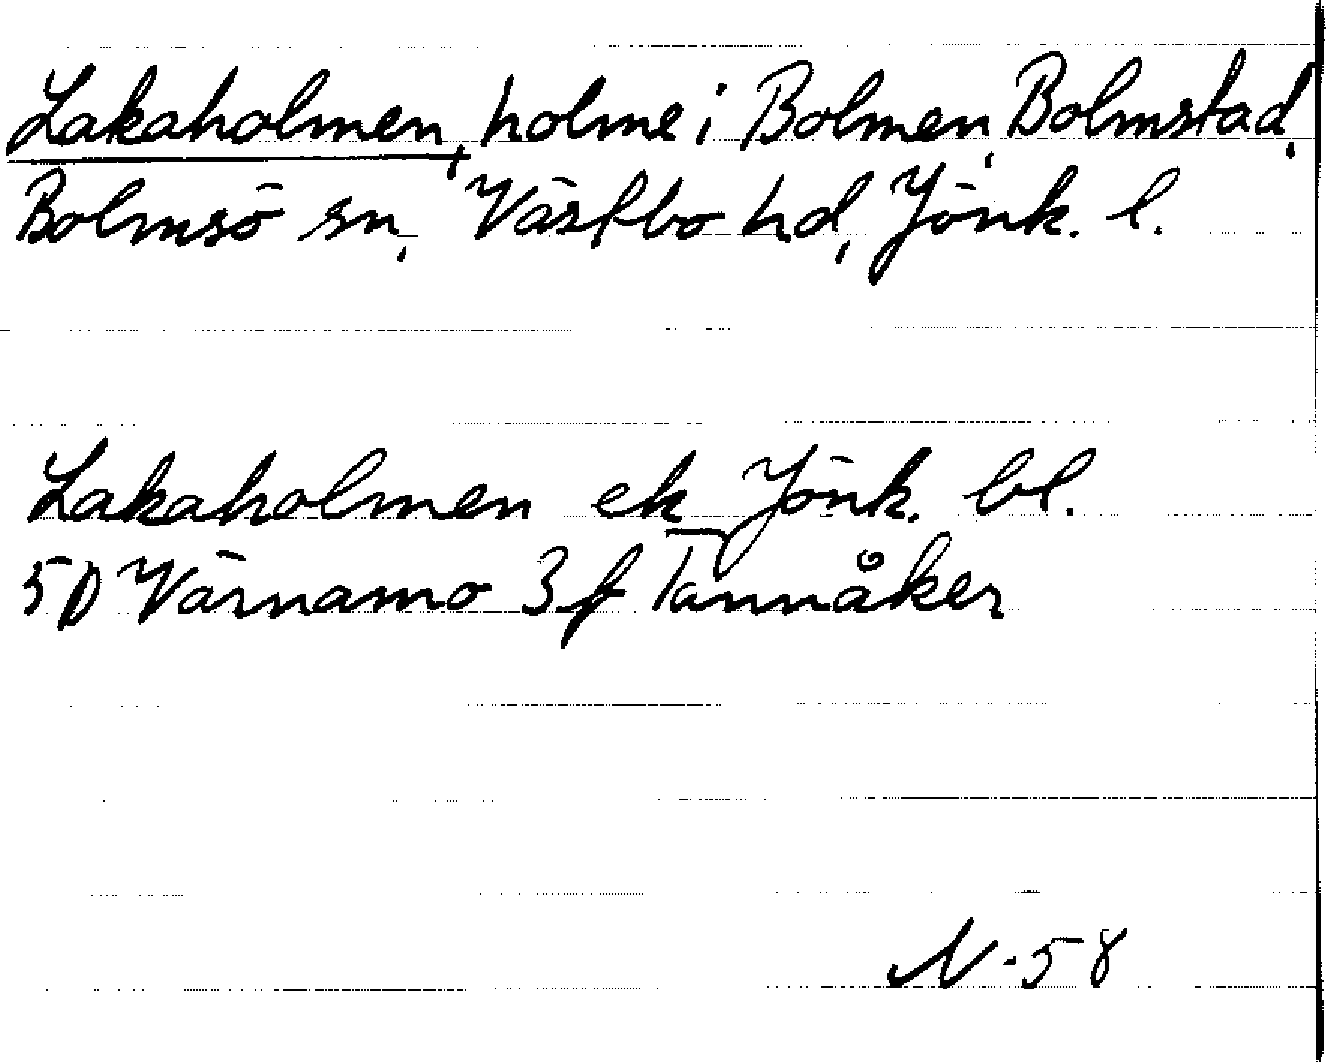 Lakaholmen, holme i Bolmen, Bolmstad,
Bolmsö sn, Västbo hd, Jönk. l.
Lakaholmen ek Jönk. bl.
5D Värnamo 3f Tannåker
N-58